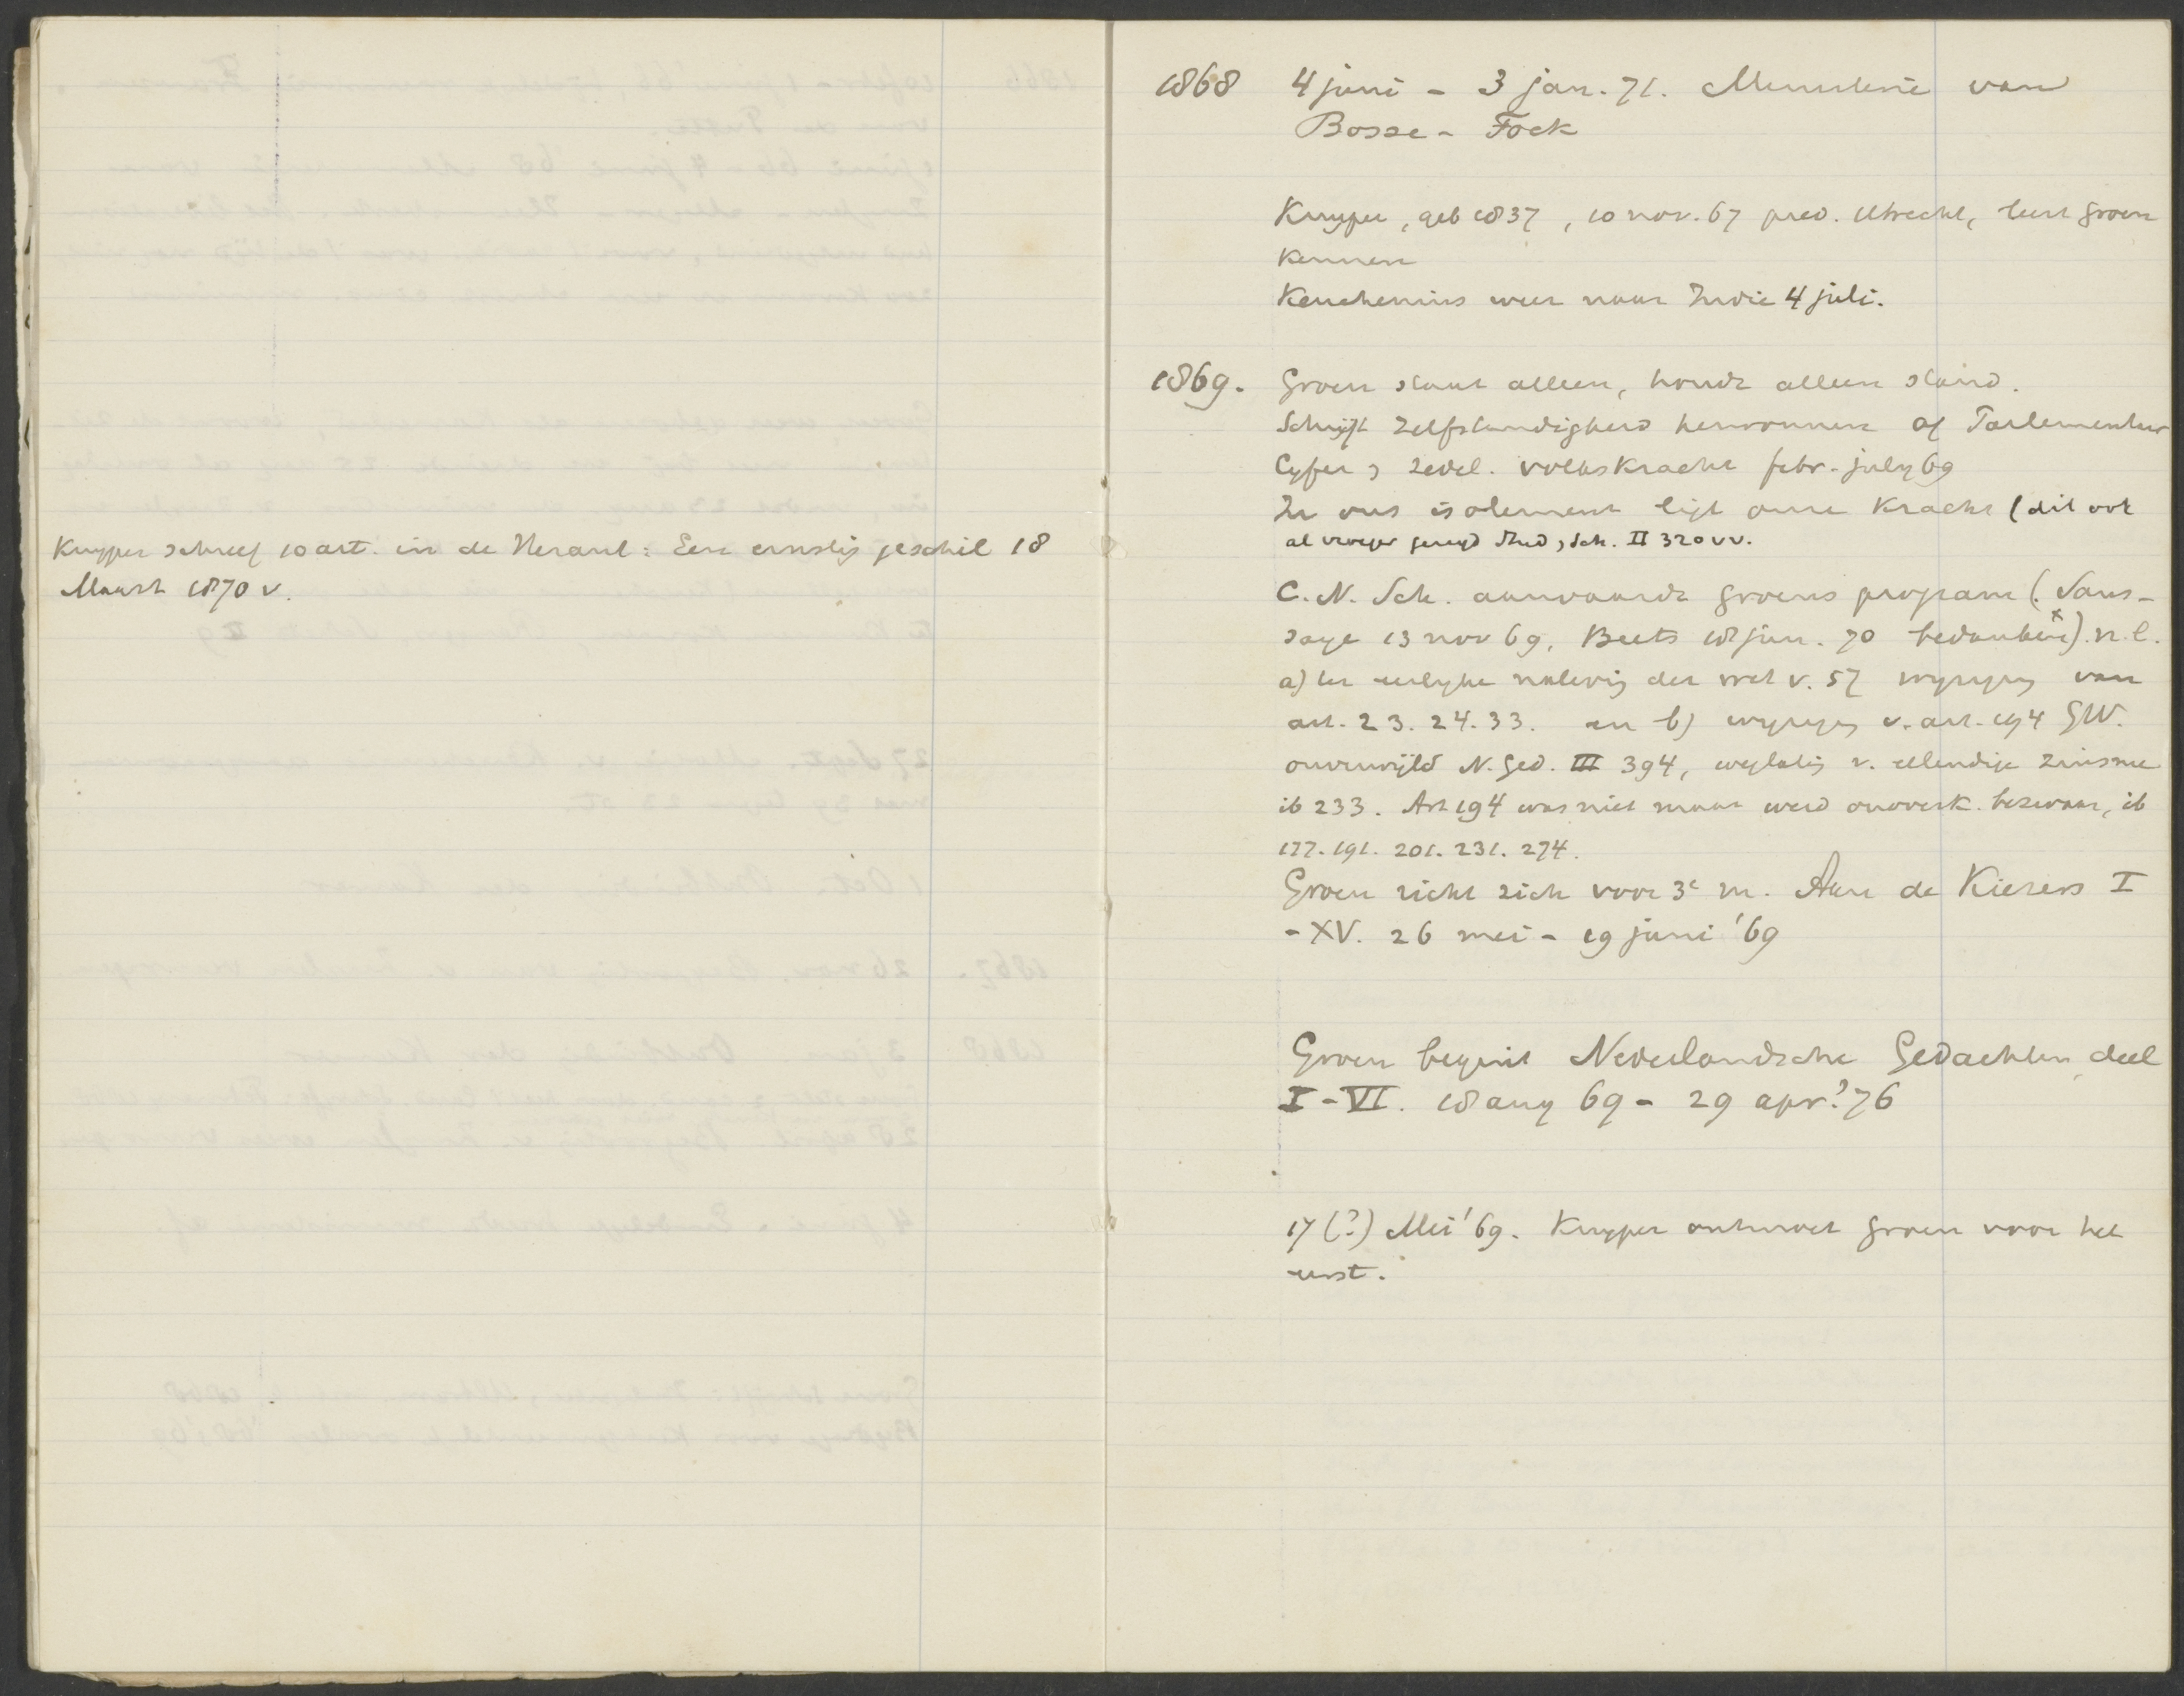 Kuyper schreef 10 art. in de Heraut: Een ernstig geschil 18
Maart 1870 v.
1868 4 juni - 3 jan. 71. Ministerie van
Bosse - Fock
Kuyper, geb 1837, 10 nov. 67 pred. Utrecht, leert Groen
kennen
Keuchenius weer naar Indie 4 juli.
1869. Groen staat alleen, houdt alleen stand.
Schrijft Zelfstandigheid herwonnen of Parlementair
Cyfer & zedel. volkskracht febr.- july 69
In ons isolement ligt onze kracht (dit ook
al vroeger gezegd Stud, Sch. II 320 vv.
C. N. Sch. aanvaardt Groens program (. Saus-
saye 13 nov 69, Beets 18 jan. 70 bedanken x). n.l.
a) ter eerlyke naleving der wet v. 57 wyziging van
art. 23. 24. 33. en b) wyziging v. art. 194 GW.
onverwijld N. Ged. III 394, weglating v. ellendige zinsnee
ib 233. Art 194 was niet maar werd onoverk. bezwaar, ib
177. 191. 201. 231. 274.
Groen richt zich voor 3e m. Aan de Kiezers I
- XV. 26 mei - 19 juni '69
Groen begint Nederlandsche Gedachten, deel
I - VI. 18 aug 69 - 29 apr.? 76
17 (?) Mei '69. Kuyper ontmoet Groen voor het
eerst.